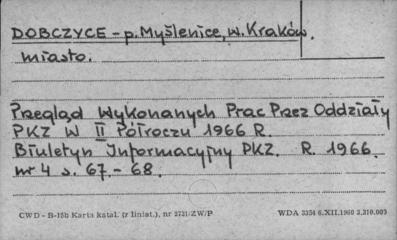 DOBCZYCE - p. Myślenice, w. Kraków.
miasto.
Przegląd Wykonanych Prac Przez Oddziały
PKZ W II Półroczu 1966 R.
Biuletyn Informacyjny PKZ. R. 1966.
nr 4 s. 67. - 68.
CWD - B-15b Karta katal. (z liniat.), nr 2721/ZW/P WDA 3354 6.XII.1960 2.210.003